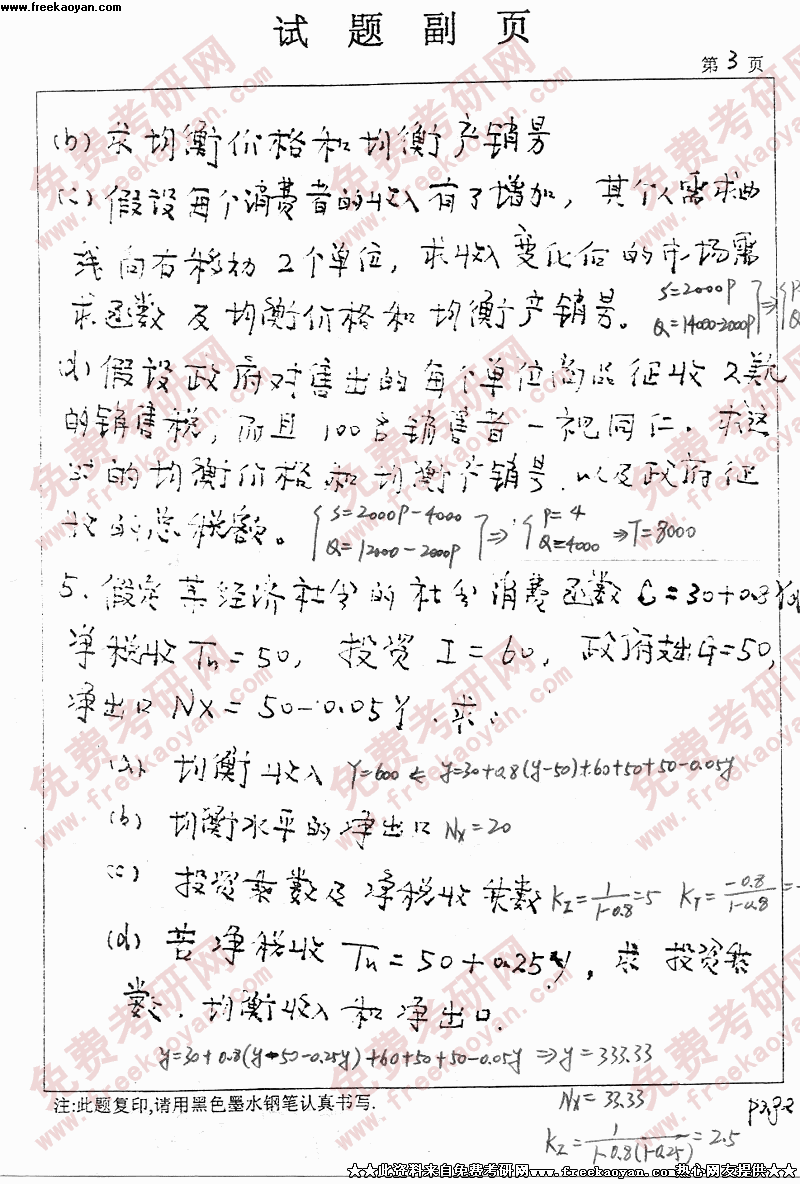 www.freekaoyan.com
试 题 副 页
第 3 页
(b) 求均衡价格和均衡产销量
(c) 假设每个消费者的收入有了增加，其个人需求曲
线向右移动2个单位，求收入变化后的市场需
求函数及均衡价格和均衡产销量。 S=2000P
Q=14000-2000P ⇒ P
Q
(d) 假设政府对售出的每个单位商品征收2美元
的销售税，而且100名销售者一视同仁。求这
对的均衡价格和均衡产销量，以及政府征
收的总税额。 S=2000P-4000
Q=12000-2000P ⇒ P=4
Q=4000 ⇒T=8000
5. 假定某经济社会的社会消费函数 C=30+0.8Yd
净税收 Tn=50，投资 I=60，政府支出G=50，
净出口 NX=50-0.05Y，求：
(a) 均衡收入 Y=600 ⇐ y=30+0.8(y-50)+60+50+50-0.05y
(b) 均衡水平的净出口 Nx=20
(c) 投资乘数及净税收乘数 KI=1/1-0.8=5 KT=-0.8/1-0.8=-
(d) 若净税收 Tn=50+0.25Y，求投资乘
数，均衡收入和净出口.
y=30+0.8(y-50-0.25y)+60+50+50-0.05y ⇒y=333.33
注:此题复印,请用黑色墨水钢笔认真书写.
Nx=33.33
KI=1/1-0.8(1-0.25)=2.5
★★此资料来自免费考研网www.freekaoyan.com热心网友提供★★
免费考研网
www.freekaoyan.com